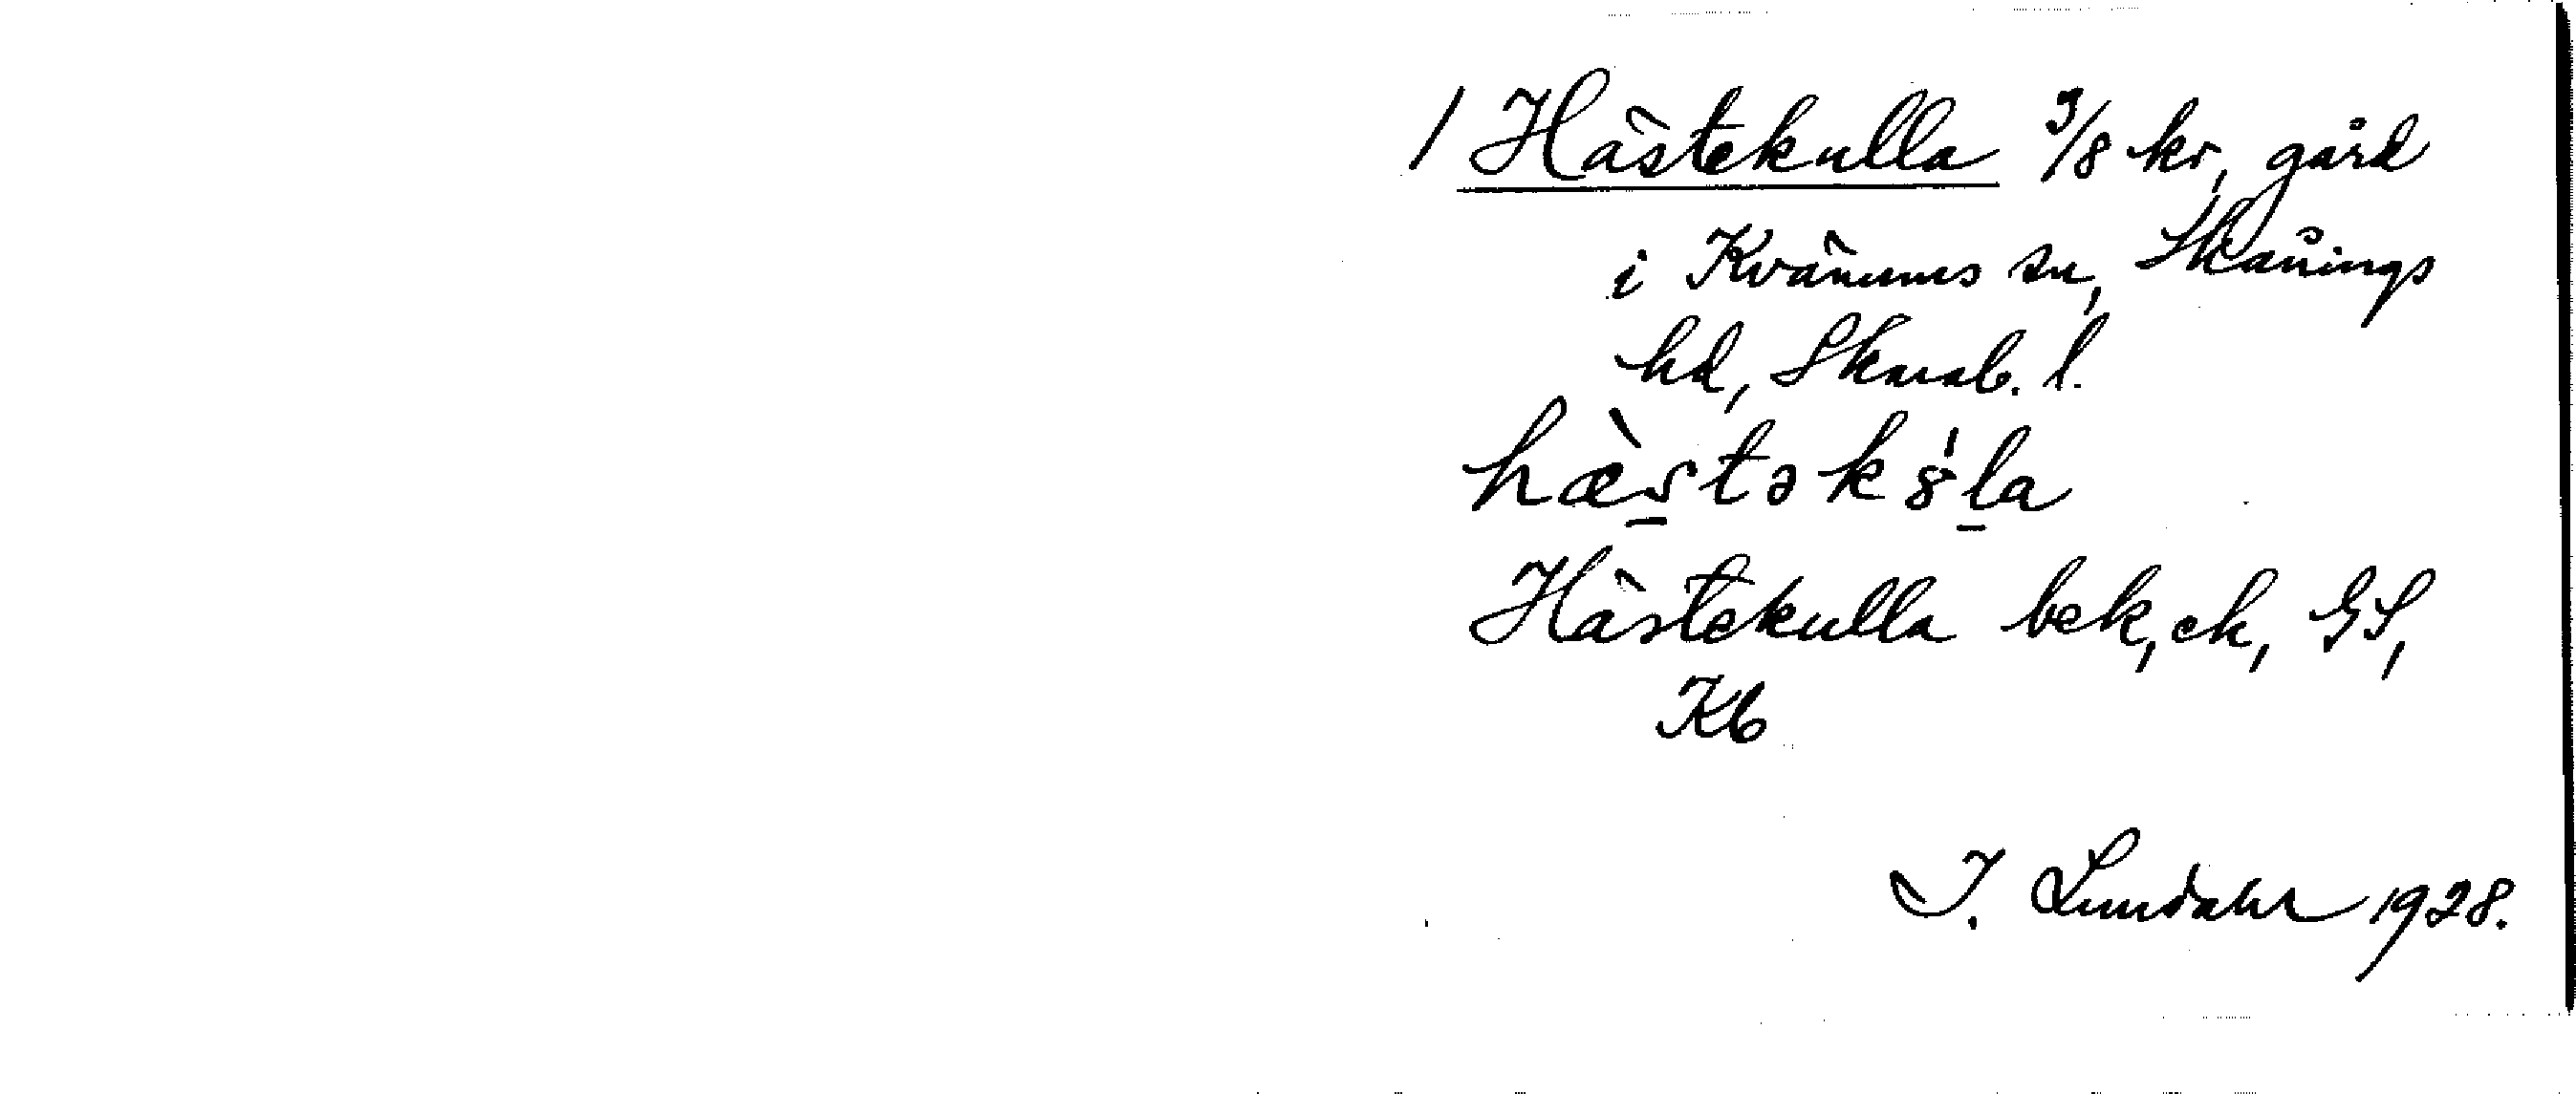 / Hästekulla 3/8 kr, gård
i Kvänums sn, Skånings
hd, Skarab. l.
hæ̀stək8̍la
Hästekulla bek, ek, GS,
Kb
I. Lundahl 1928.